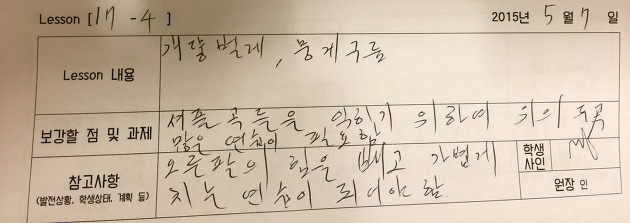 Lesson [17-4] 2015년 5월 7일
Lesson 내용
개똥벌레, 뭉게구름
보강할 점 및 과제
셔플 곡들을 익히기 위하여 위의 두곡
많은 연습이 필요함
참고사항
(발전상황, 학생상태, 계획 등)
오른팔의 힘을 빼고 가볍게
치는 연습이 되어야 함.
학생
사인
원장 인